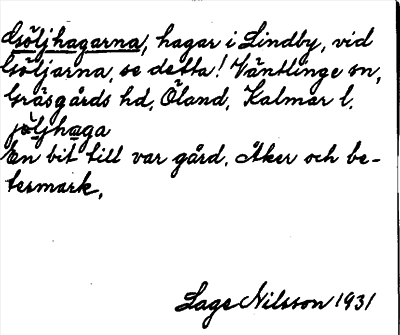 Göljhagarna, hagar i Lindby, vid
Göljarna, se detta! Ventlinge sn,
Gräsgårds hd, Öland, Kalmar l.
jöljhaga
En bit till var gård. Åker och be-
tesmark.
Lage Nilsson 1931